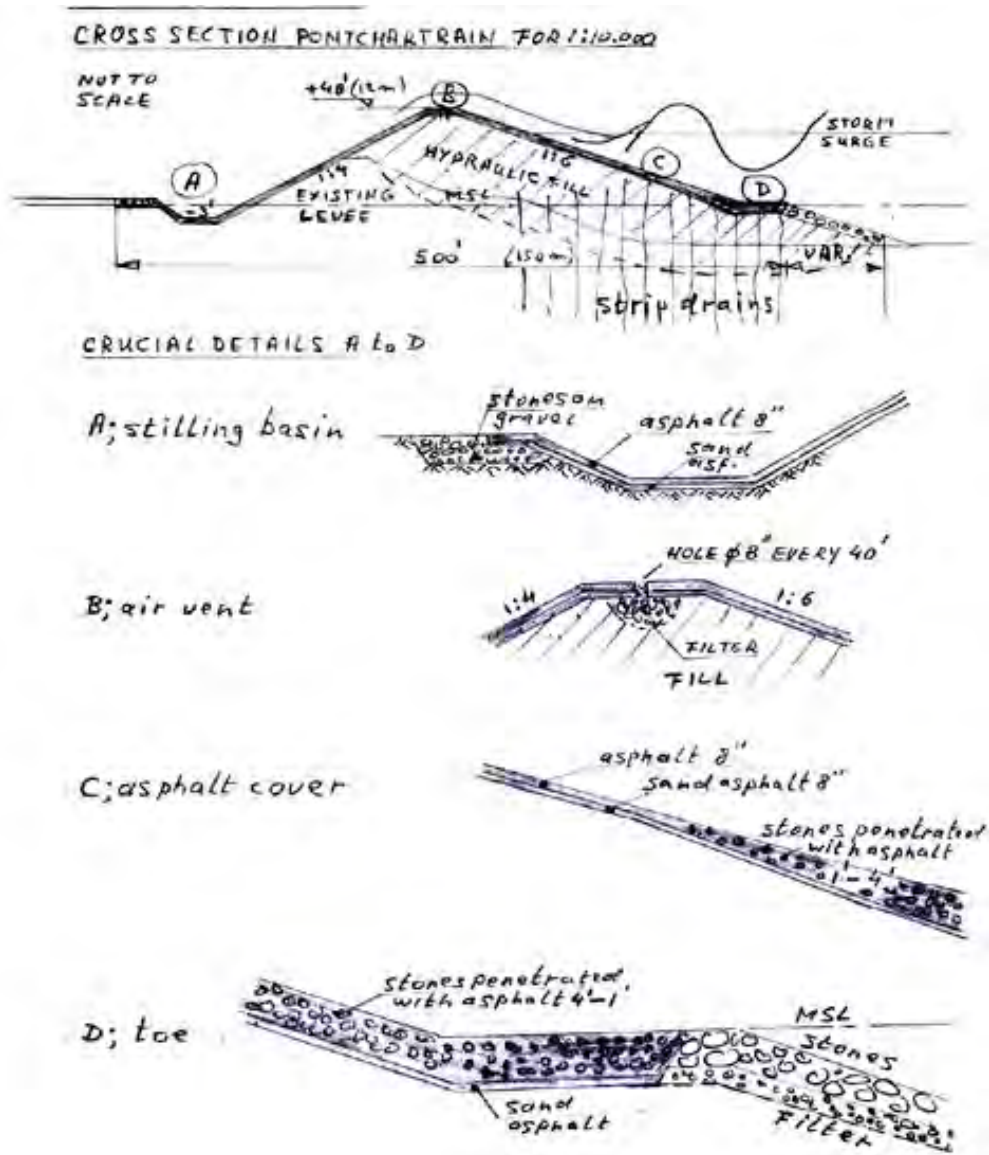 CROSS SECTION PONTCHARTRAIN FOR 1:10.000
NOT TO
SCALE
+40' (12m)
B
STORM
SURGE
1:6
HYDRAULIC FILL
C
A
-3'
1:4
EXISTING
LEVEE
MSL
D
500'
(150m)
VAR.
strip drains
CRUCIAL DETAILS A to D
A; stilling basin
stones on
gravel
asphalt 8"
sand
asf.
B; air vent
HOLE ϕ8" EVERY 40'
1:4
1:6
FILTER
FILL
C; asphalt cover
asphalt 8"
sand asphalt 8"
stones penetrated
with asphalt
1'-4'
D; toe
stones penetrated
with asphalt 4'-1'
MSL
stones
sand
asphalt
Filter